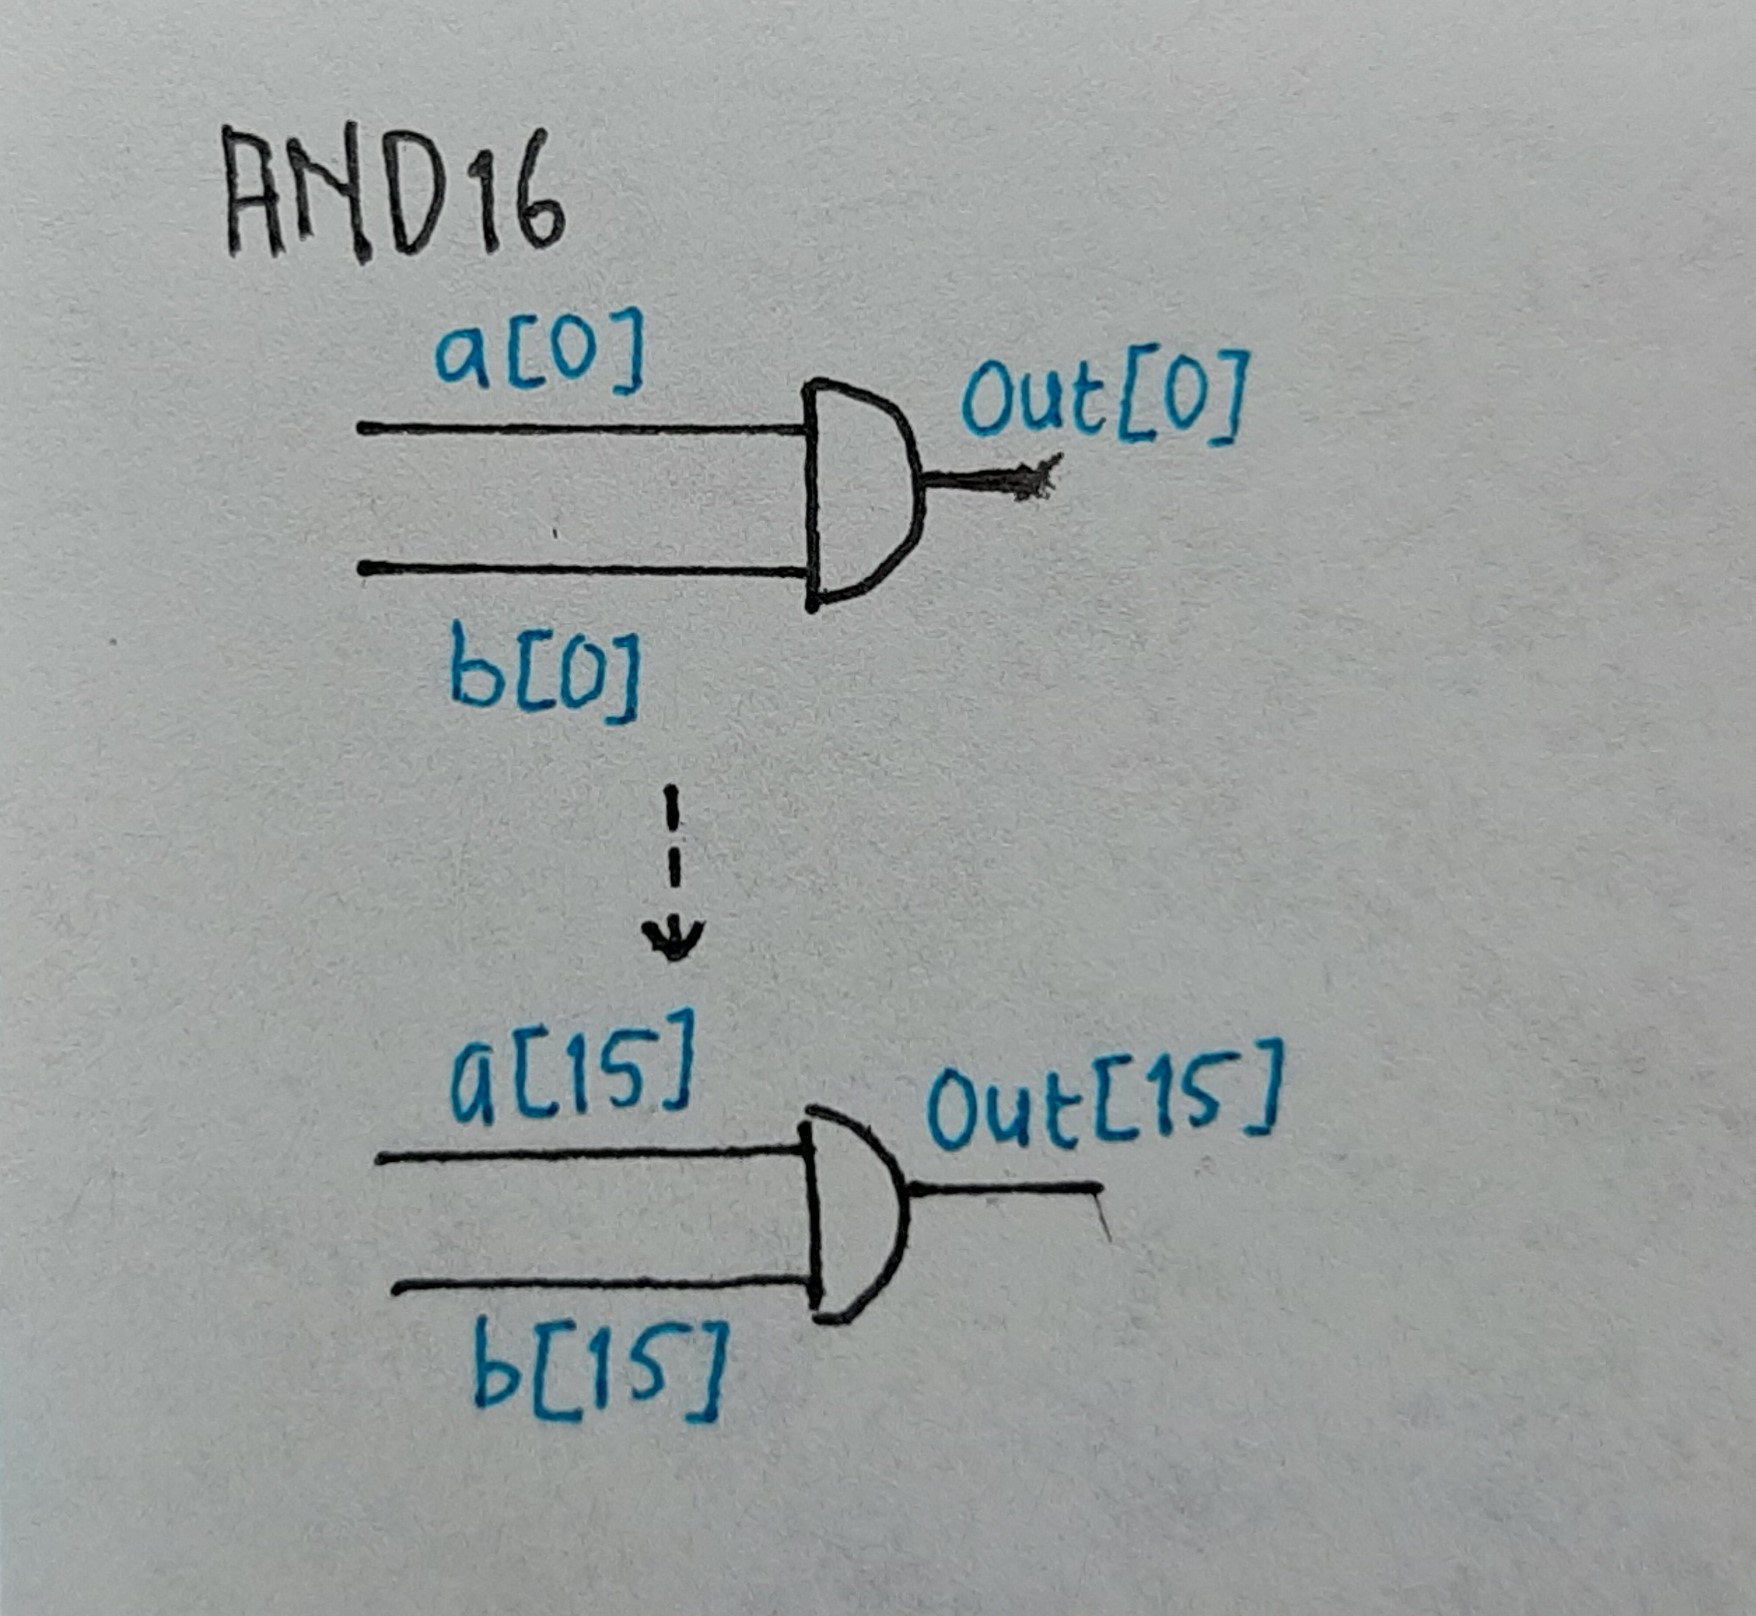 AND16
a[0]
Out[0]
b[0]
a[15]
Out[15]
b[15]